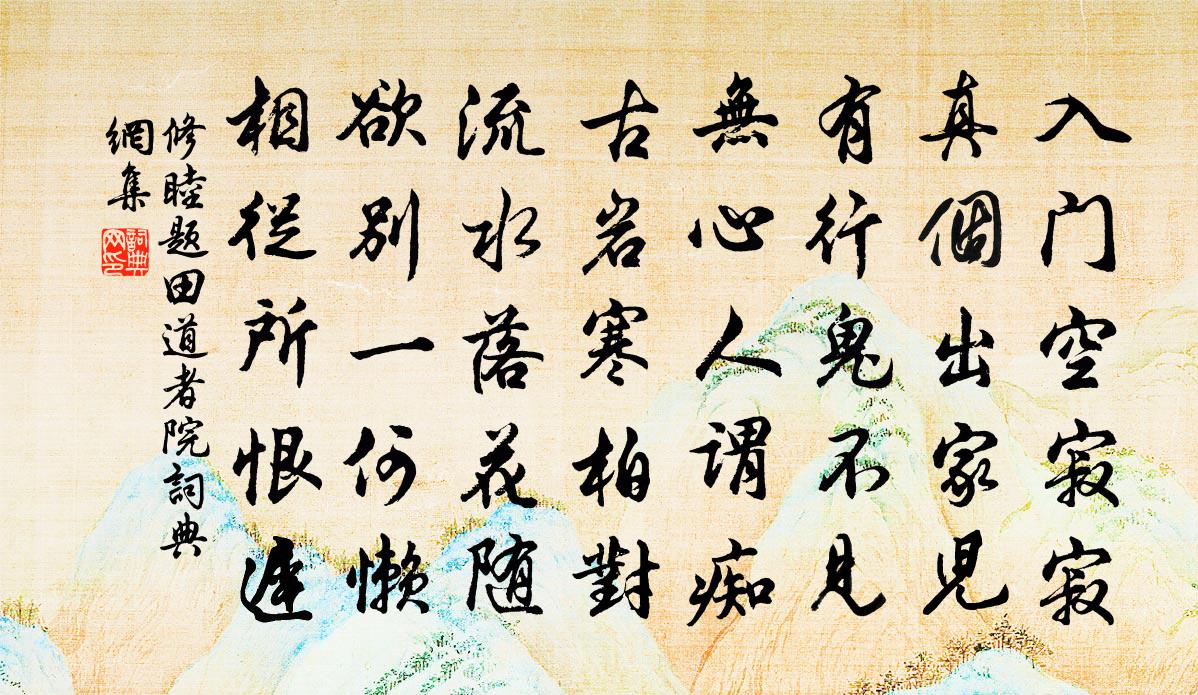 入门空寂寂
真個出家兒
有行鬼不見
無心人謂痴
古岩寒柏對
流水落花随
欲別一何懒
相從所恨遲
修睦題田道者院詞典
網集
詞典網印